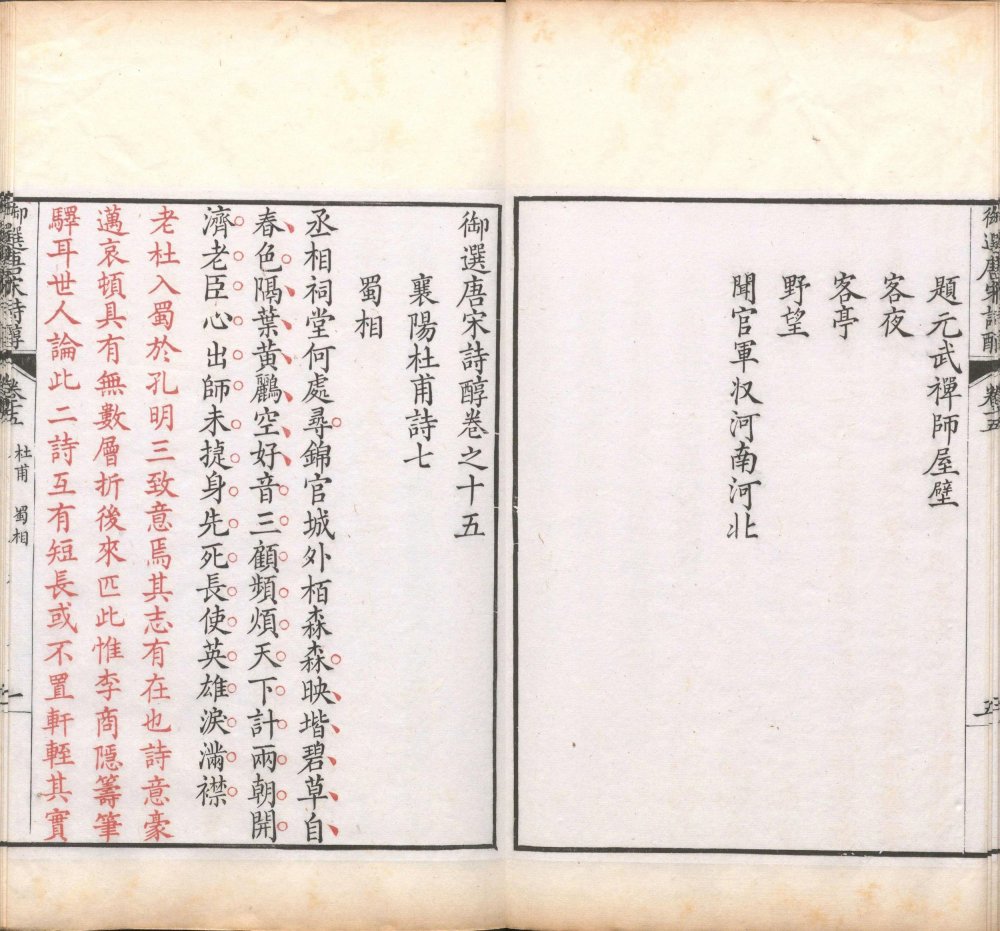 題元武禪師屋壁
客夜
客亭
野望
聞官軍収河南河北
御選唐宋詩醇卷之十五
襄陽杜甫詩七
蜀相
丞相祠堂何處尋錦官城外栢森森映堦碧草自
春色隔葉黃鸝空好音三顧頻煩天下計兩朝開
濟老臣心出師未捷身先死長使英雄淚滿襟
老杜入蜀於孔明三致意焉其志有在也詩意豪
邁哀頓具有無數層折後來匹此惟李商隱籌筆
驛耳世人論此二詩互有短長或不置軒輊其實
御選唐宋詩醇 卷十五 杜甫 蜀相 一